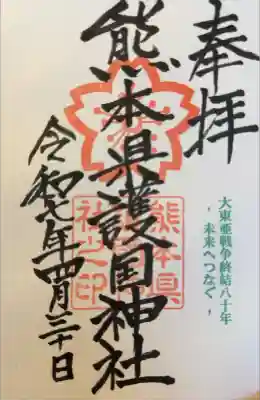 奉拝
大東亜戦争終結八十年
- 未来へつなぐ -
熊本県護国神社
熊本県
社之印
令和七年四月三十日